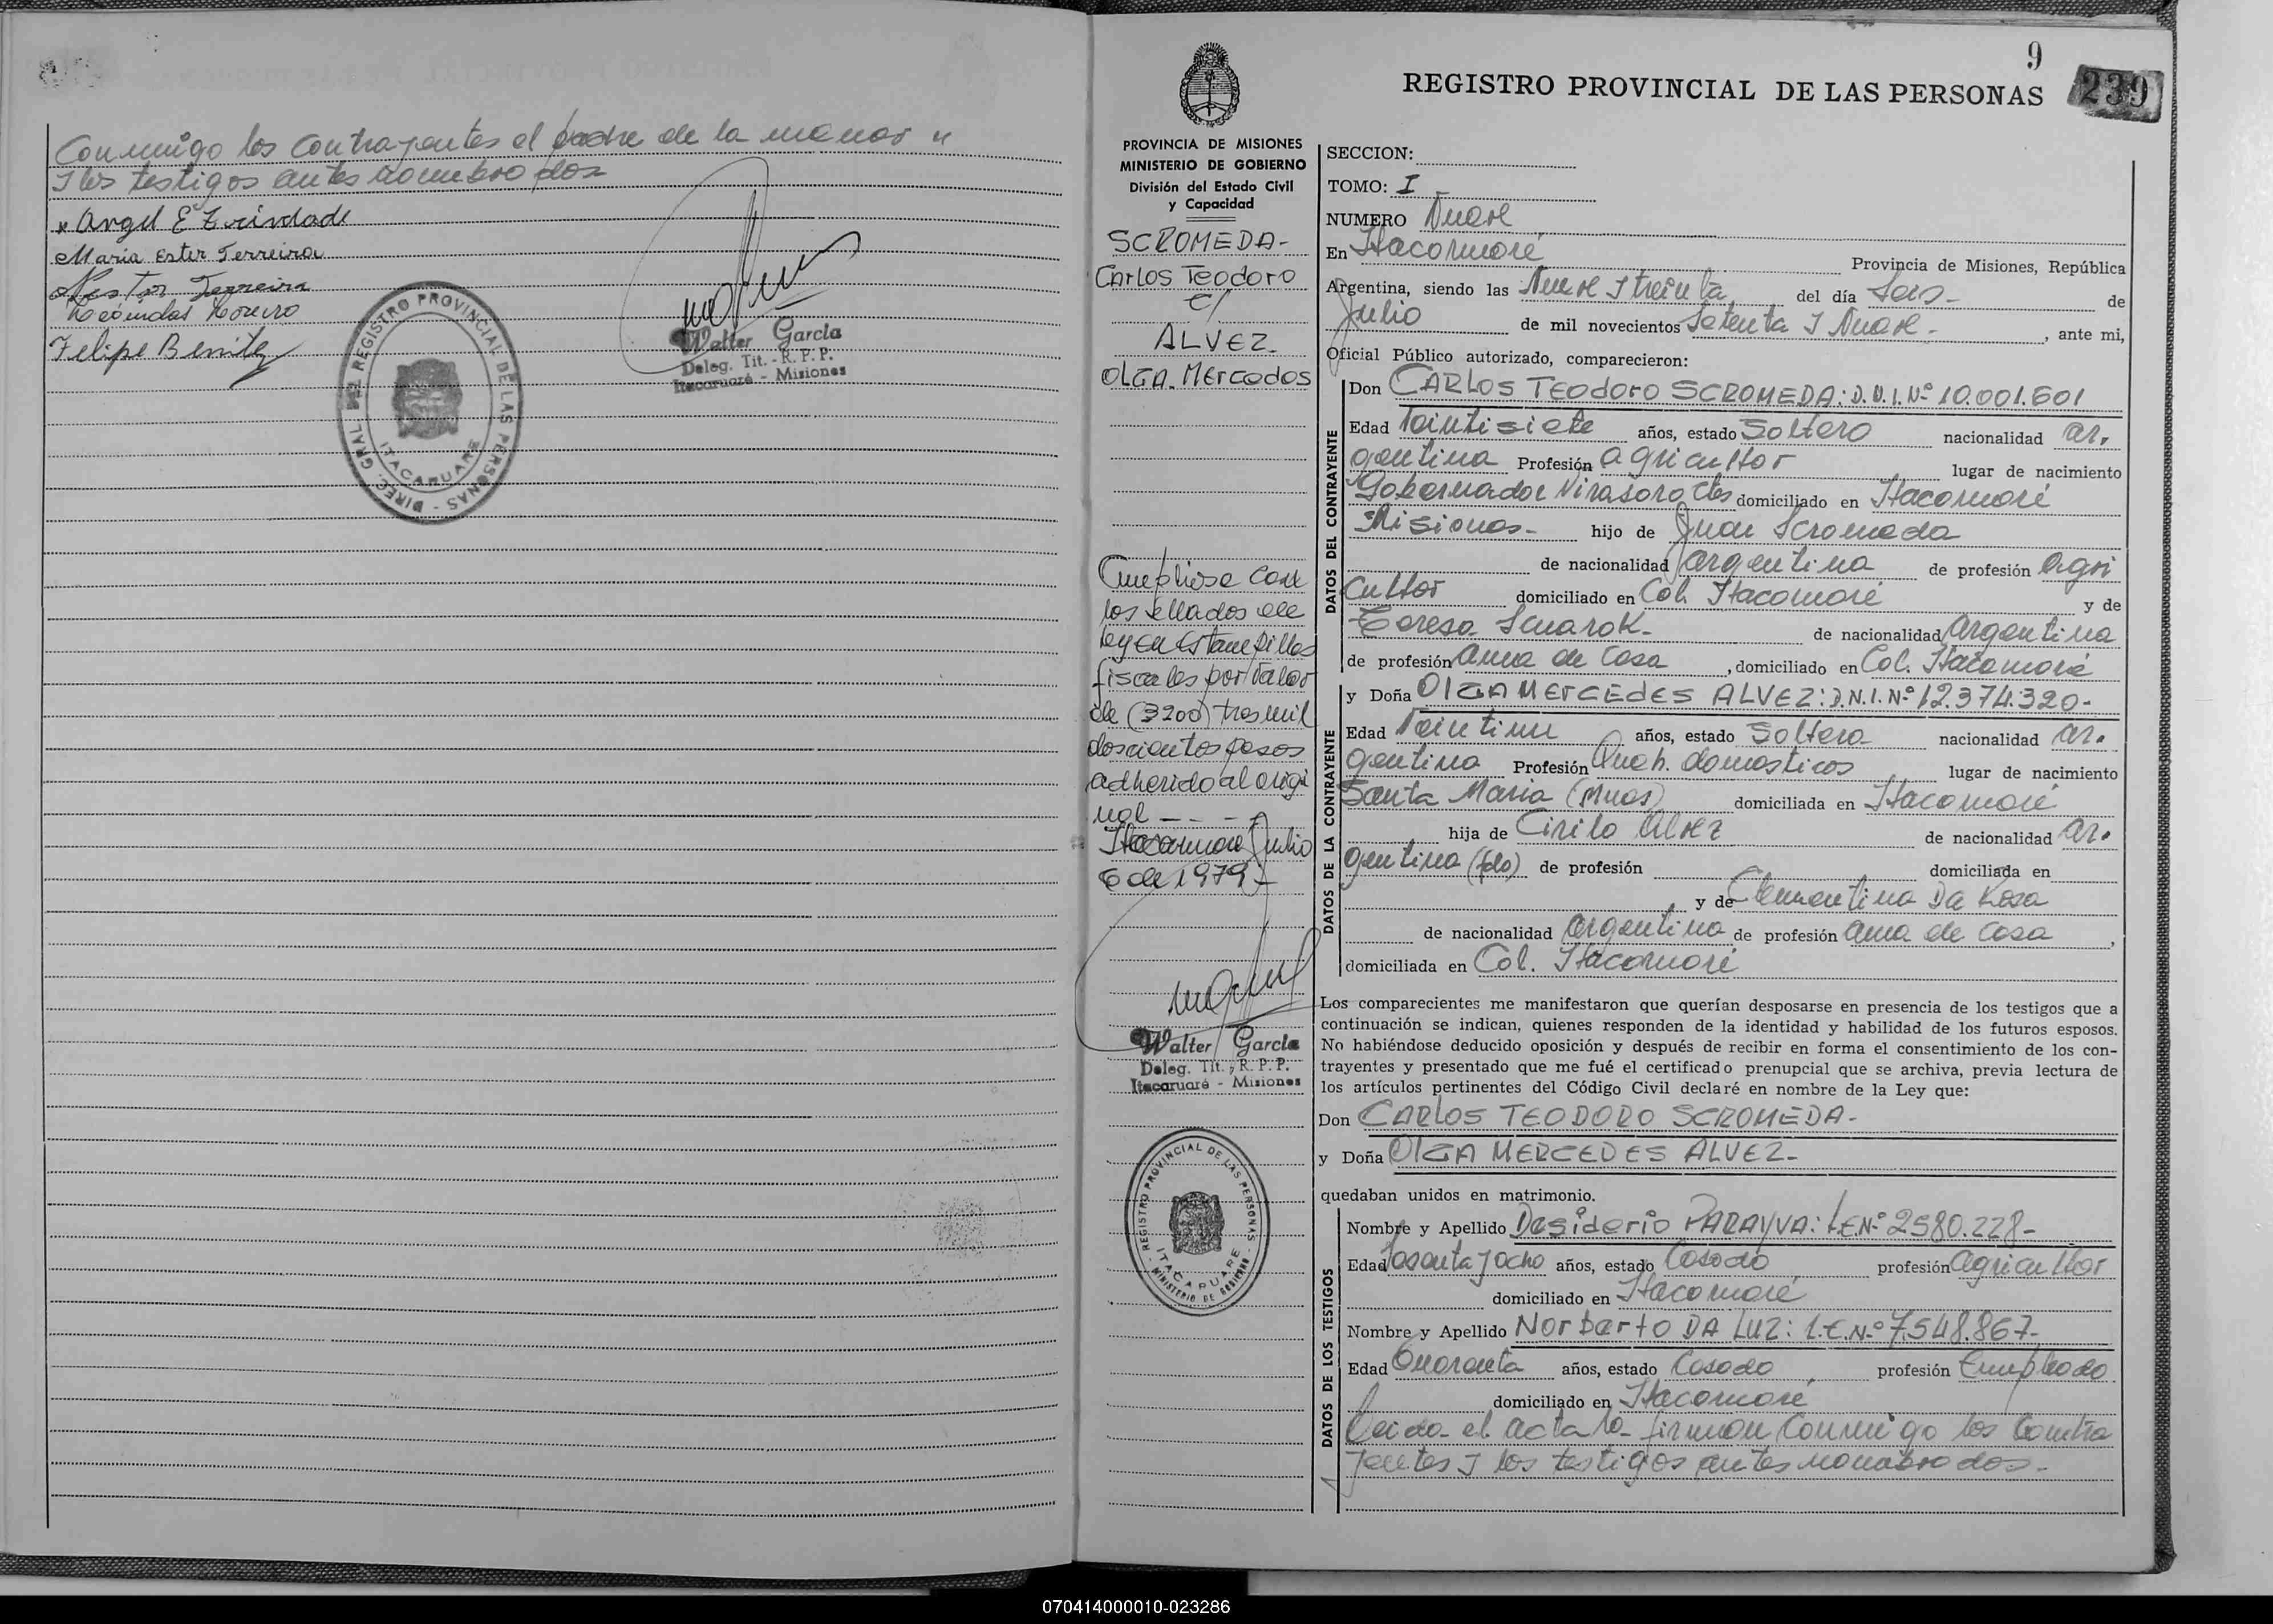 Conmigo los contrayentes el padre de la menor "
y los testigos antes nombrados
x Angel E Trindade
Maria Ester Ferreira
Nestor Ferreira
Leonidas
Felipe Benitez
Walter Garcia
Deleg. Tit. - R. P. P.
Itacaruaré - Misiones
DIREC. GRAL DEL REGISTRO PROVINCIAL DE LAS PERSONAS -
ITACARUARE
9
239
REGISTRO PROVINCIAL DE LAS PERSONAS
PROVINCIA DE MISIONES
MINISTERIO DE GOBIERNO
División del Estado Civil
y Capacidad
SCROMEDA-
Carlos Teodoro
C/
ALVEZ-
OLGA. Mercedes
Cumpliose con
los sellados de
ley en estampillas
fiscales por valor
de (3200) tres mil
doscientos pesos
adherido al origi
nal - - - -
Itacaruare Julio
6 de 1979-
Walter Garcia
Deleg. Tit. R. P. P.
Itacaruaré - Misiones
REGISTRO PROVINCIAL DE LAS PERSONAS -
ITACARUARE
MINISTERIO DE GOBIERNO
SECCION:
TOMO: I
NUMERO Nueve
En Itacaruaré Provincia de Misiones, República
Argentina, siendo las Nueve y treinta del día Seis- de
Julio de mil novecientos Setenta y Nueve-, ante mi,
Oficial Público autorizado, comparecieron:
DATOS DEL CONTRAYENTE
Don CARLOS TEODORO SCROMEDA: D.N.I. Nº 10.001.601
Edad Veintisiete años, estado Soltero nacionalidad ar.
gentina Profesión agricultor lugar de nacimiento
Gobernador Virasoro Ctes domiciliado en Itacaruaré
Misiones- hijo de Juan Scromeda
de nacionalidad argentina de profesión agri
cultor domiciliado en Col. Itacaruaré y de
Teresa de nacionalidad Argentina
de profesión ama de casa, domiciliado en Col. Itacaruaré
DATOS DE LA CONTRAYENTE
y Doña OLGA MERCEDES ALVEZ: D.N.I. Nº 12.374.320-
Edad Veintiun años, estado Soltera nacionalidad ar.
gentina Profesión Queh. domesticos lugar de nacimiento
Santa Maria (Mnes) domiciliada en Itacaruaré
hija de Cirilo Alvez de nacionalidad ar.
gentina (fdo) de profesión domiciliada en
y de Clementina Da Rosa
de nacionalidad argentina de profesión ama de casa,
domiciliada en Col. Itacaruaré
Los comparecientes me manifestaron que querían desposarse en presencia de los testigos que a
continuación se indican, quienes responden de la identidad y habilidad de los futuros esposos.
No habiéndose deducido oposición y después de recibir en forma el consentimiento de los con-
trayentes y presentado que me fué el certificado prenupcial que se archiva, previa lectura de
los artículos pertinentes del Código Civil declaré en nombre de la Ley que:
Don CARLOS TEODORO SCROMEDA-
y Doña OLGA MERCEDES ALVEZ-
quedaban unidos en matrimonio.
DATOS DE LOS TESTIGOS
Nombre y Apellido Desiderio PARAYVA: L.E.Nº 2580.228-
Edad Sesenta y ocho años, estado Casado profesión agricultor
domiciliado en Itacaruaré
Nombre y Apellido Norberto DA LUZ: L.E.Nº 7.548.867-
Edad Cuarenta años, estado Casado profesión Empleado
domiciliado en Itacaruaré
Leida el acta la firman conmigo los contra
yentes y los testigos antes nombrados-
070414000010-023286